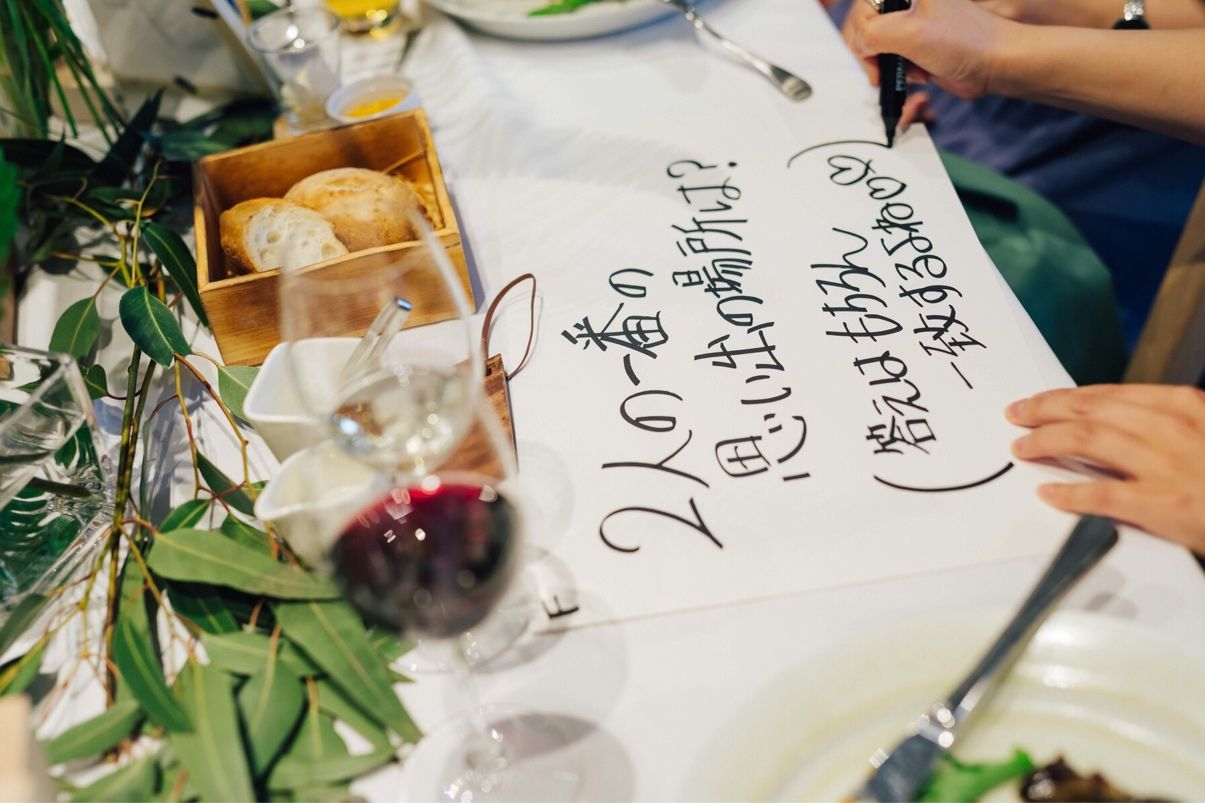 2人の一番の
思い出の場所は?
(答えはもちろん♡)
一致するよね♡♡
F
PERMA